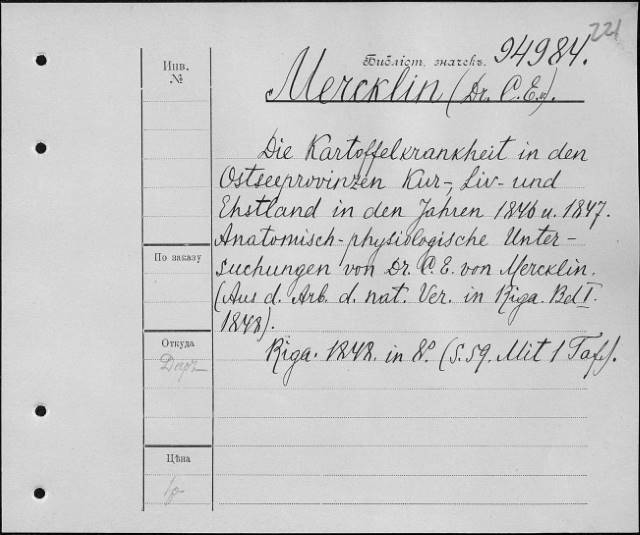 221
Библіот. значекъ. 94984.
Инв.
№
Mercklin (Dr. C. E. v.).
Die Kartoffelkrankheit in den
Ostseeprovinzen Kur-, Liv- und
Ehstland in den Jahren 1846 u. 1847.
Anatomisch-physiologische Unter-
suchungen von Dr. C. E. von Mercklin.
(Aus d. Arb. d. nat. Ver. in Riga. Bd I.
1848).
Riga. 1848. in 8º. (S. 59. Mit 1 Taf).
По заказу
Откуда
Цѣна
1р